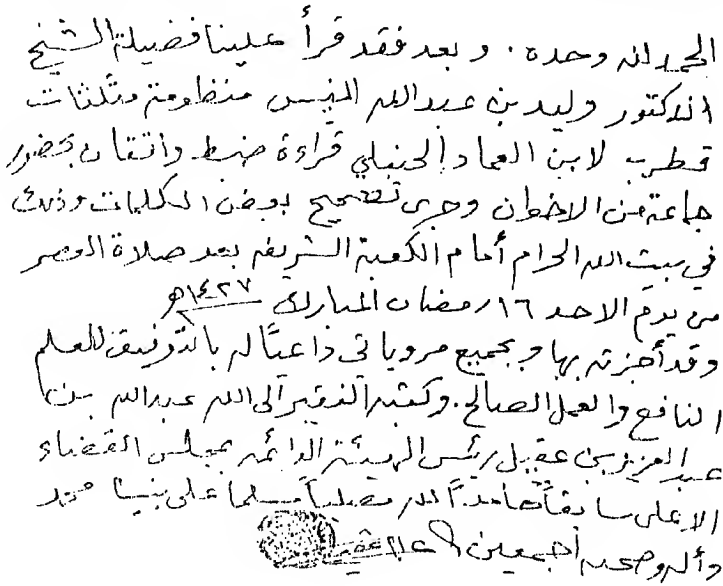 الحمد لله وحده. وبعد فقد قرأ علينا فضيلة الشيخ
الدكتور وليد بن عبدالله المنيس منظومة مثلثات
قطرب لابن العماد الحنبلي قراءة ضبط واتقان بحضور
جماعة من الاخوان وجرى تصحيح بعض الكلمات وذلك
في بيت الله الحرام أمام الكعبة الشريفه بعد صلاة العصر
من يوم الاحد ١٦ رمضان المبارك ١٤٢٧هـ
وقد أجزته بها وبجميع مروياتي داعيًا له بالتوفيق للعلم
النافع والعمل الصالح. وكتبه الفقير الى الله عبدالله بن
عبدالعزيز بن عقيل رئيس الهيئة الدائمه بمجلس القضاء
الاعلى سابقاً حامداً لله مصلياً مسلما على نبينا محمد
وآله وصحبه اجمعين